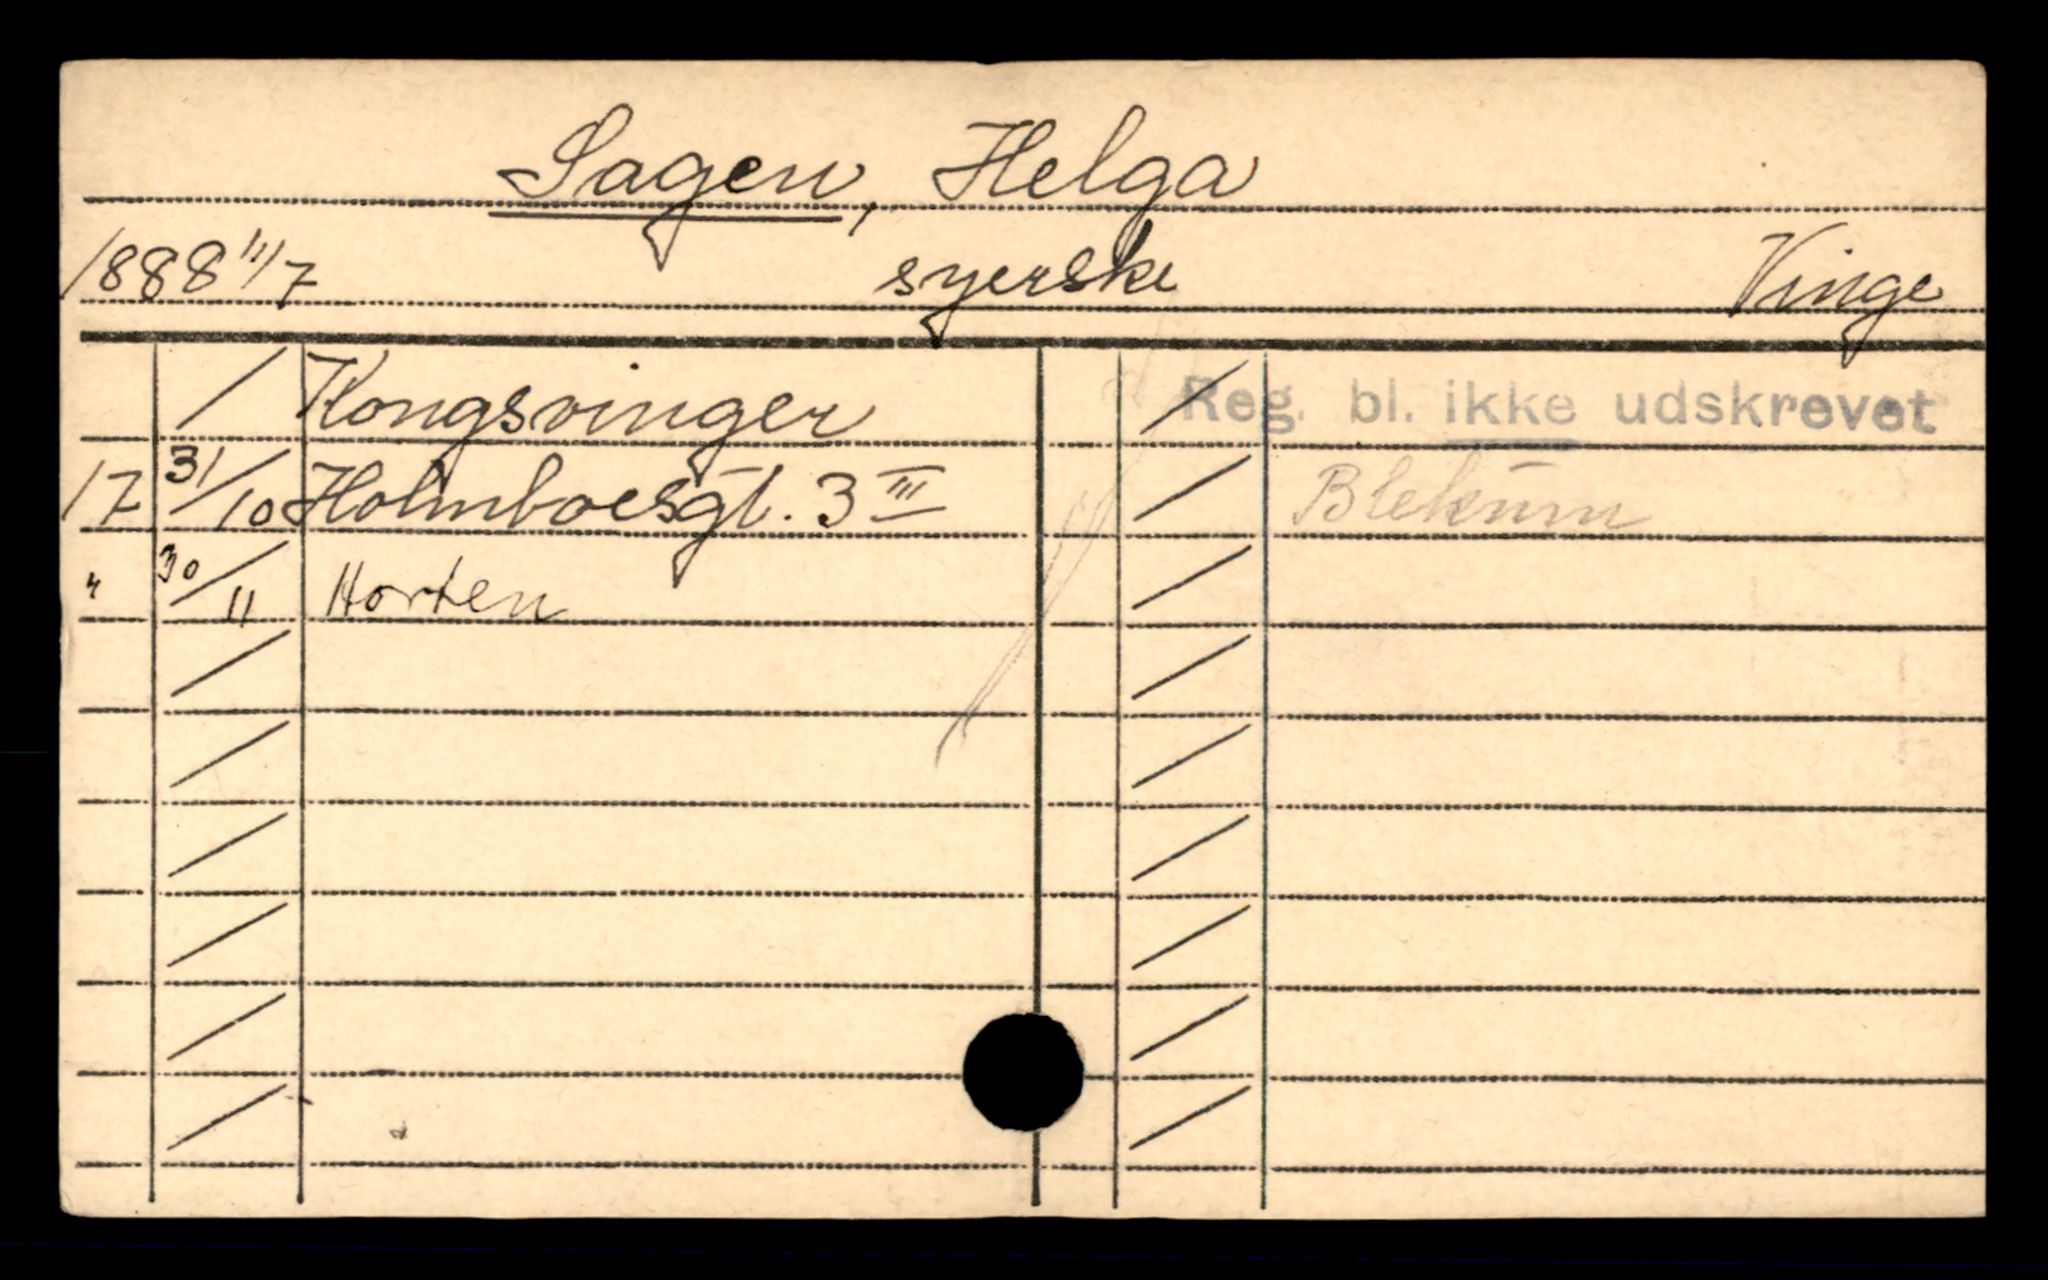 Sagen, Helga
1888 11/7 syerske Vinge
/ Kongsvinger
17 31/10 Holmboesgt. 3 III
" 30/11 Horten
Reg. bl. ikke udskrevet